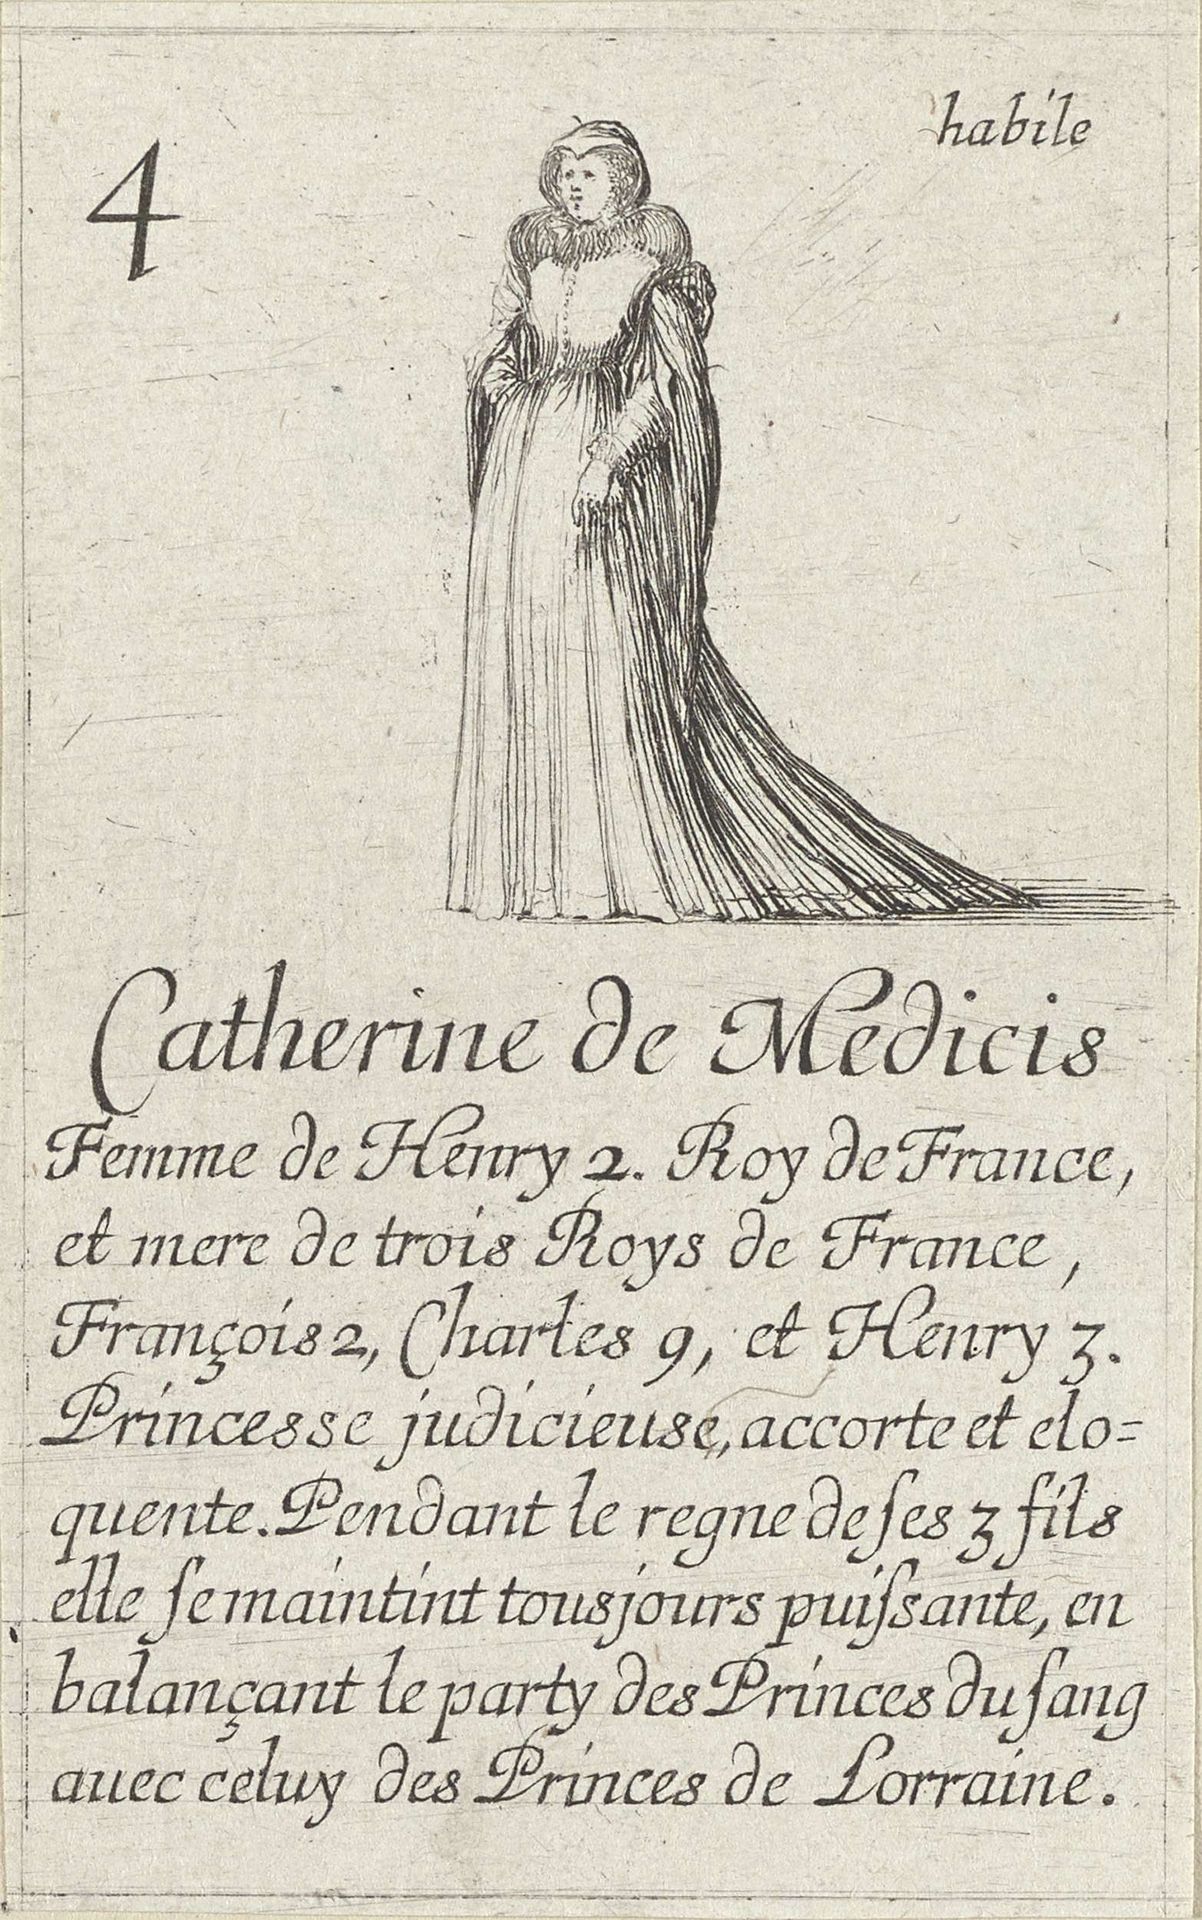 4
habile
Catherine de Medicis
Femme de Henry 2. Roy de France,
et mere de trois Roys de France,
François 2, Charles 9, et Henry 3.
Princesse judicieuse, accorte et elo=
quente. Pendant le regne de ſes 3 fils
elle ſe maintint tousjours puiſsante, en
balançant le party des Princes du ſang
auec celuy des Princes de Lorraine.